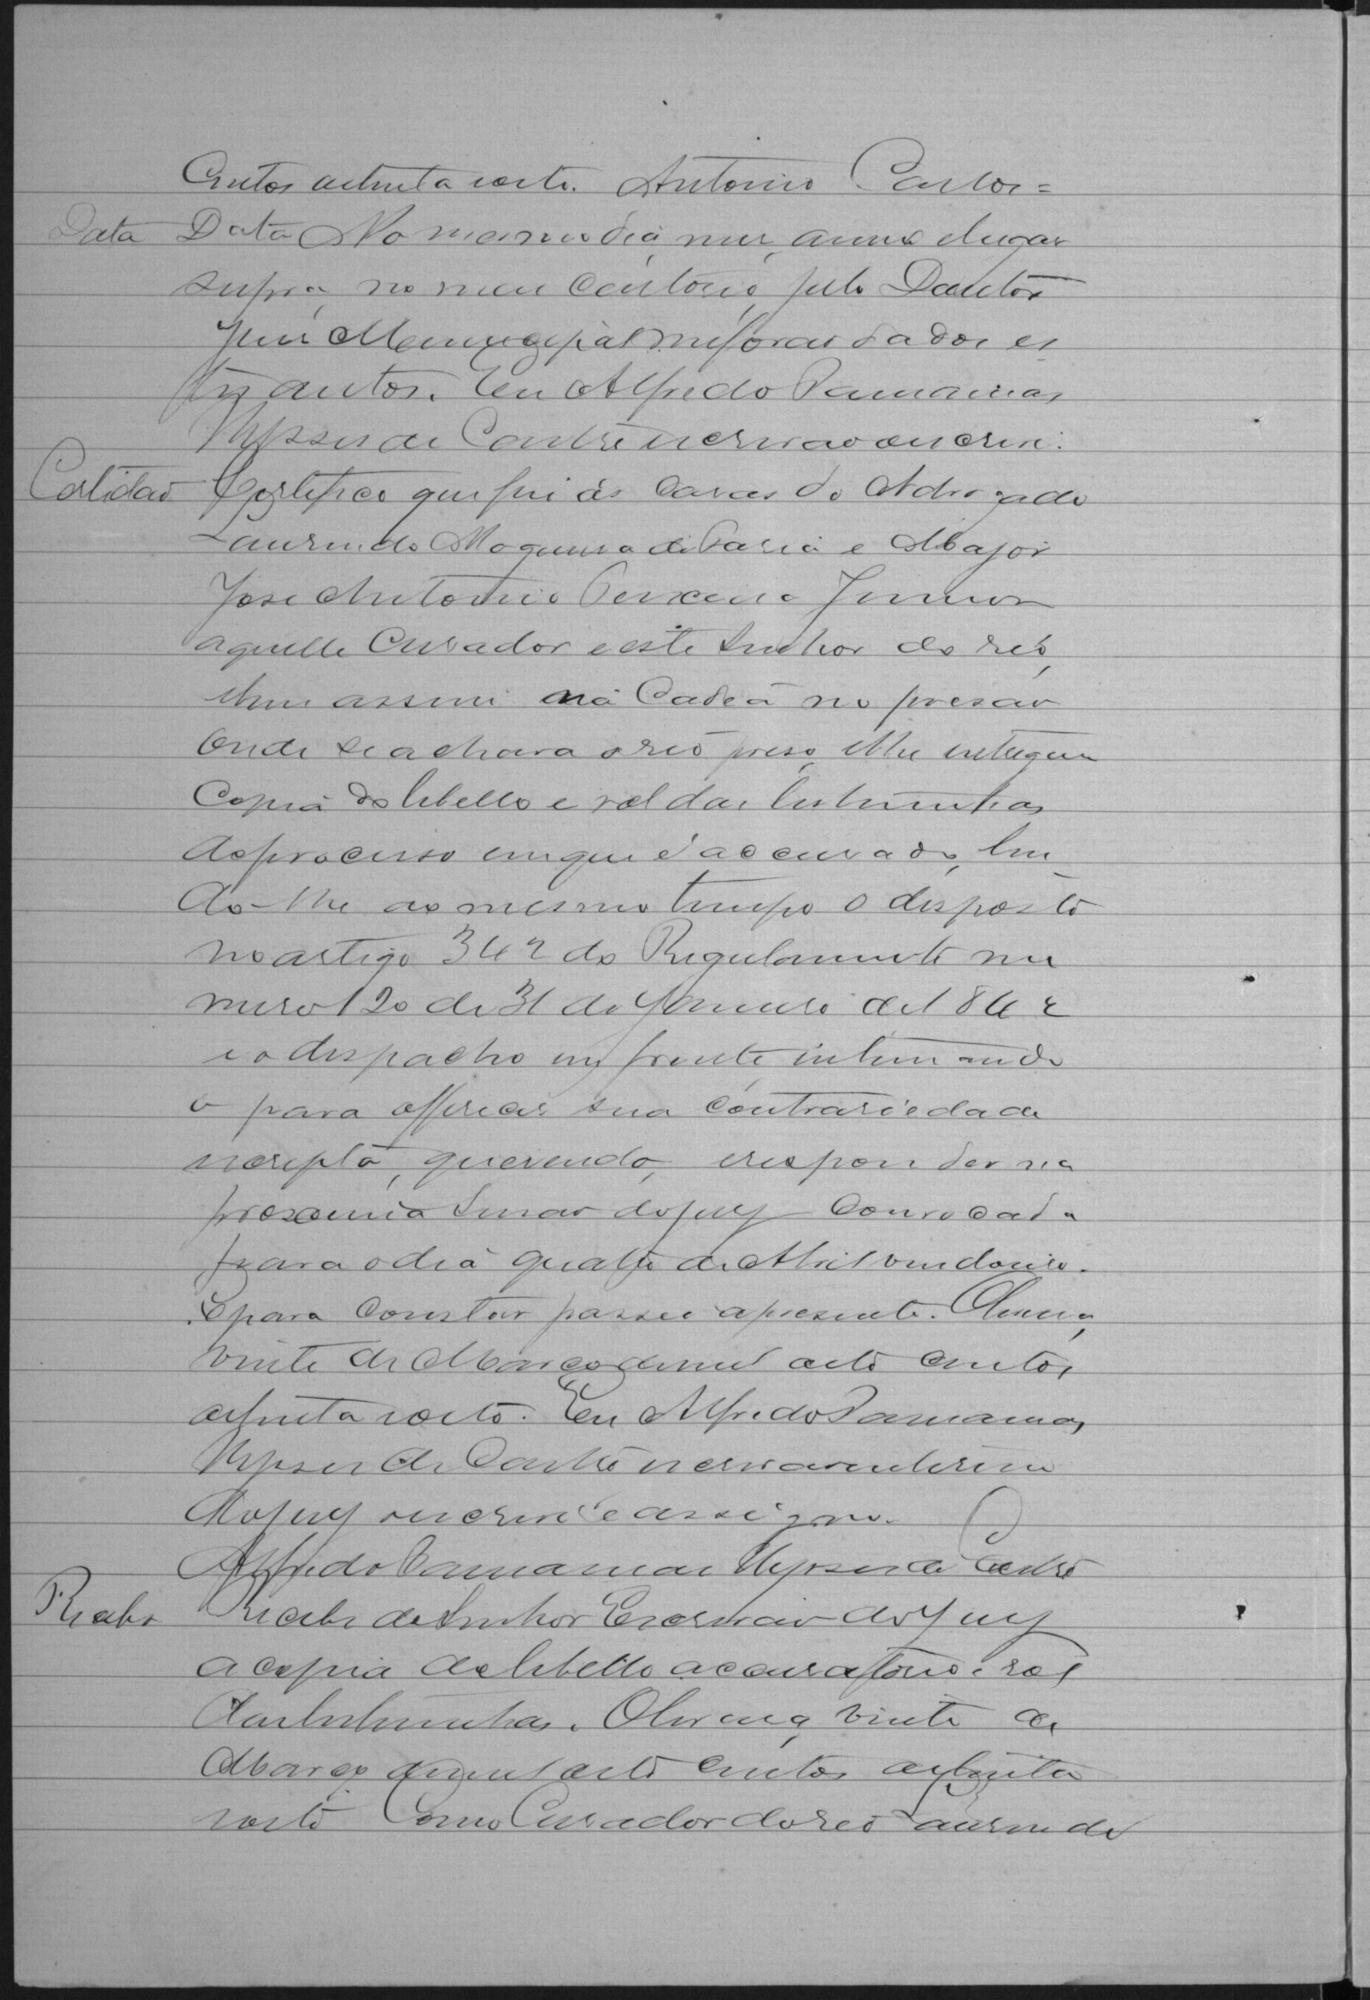 centos oitenta e oito. Antonio Carlos =
Data Data No mesmo dia, mez, anno e lugar
supra, no meu cartorio, pelo Doutor
Juiz Municipal me forão dados es
tes autos. Eu Alfredo
de Castro escrivão escrevi.
Certidão Certifico que fui ás casas do Advogado
Laurindo Nogueira de Faria e Major
José Antonio Teixeira Junior
aquelle Curador e este Senhor do réo,
e bem assim na Cadeia no
onde se achava o réo preso, e lhe entreguei
Copia do libello e rol das testemunhas
do processo em que é accusado, len
do-lhe ao mesmo tempo o disposto
no artigo 342 do Regulamento nu
mero 120 de 31 de Janeiro de 1842
e o despacho em frente intimando
o para offerecer sua contrariedade
escripta, querendo, e responder na
proxima sessão do jury convocada
para o dia quatro de Abril vindouro.
E para constar passei a presente.
vinte de Março de mil oito centos
oitenta e oito. Eu Alfredo
de Castro escrivão interino
do jury escrevi e assigno.
Alfredo de Castro
Recebi Recebi do Senhor Escrivão do Jury
a copia do libello accusatorio e rol
das testemunhas. vinte de
Março de mil oito centos oitenta
e oito Como Curador do réo Laurindo